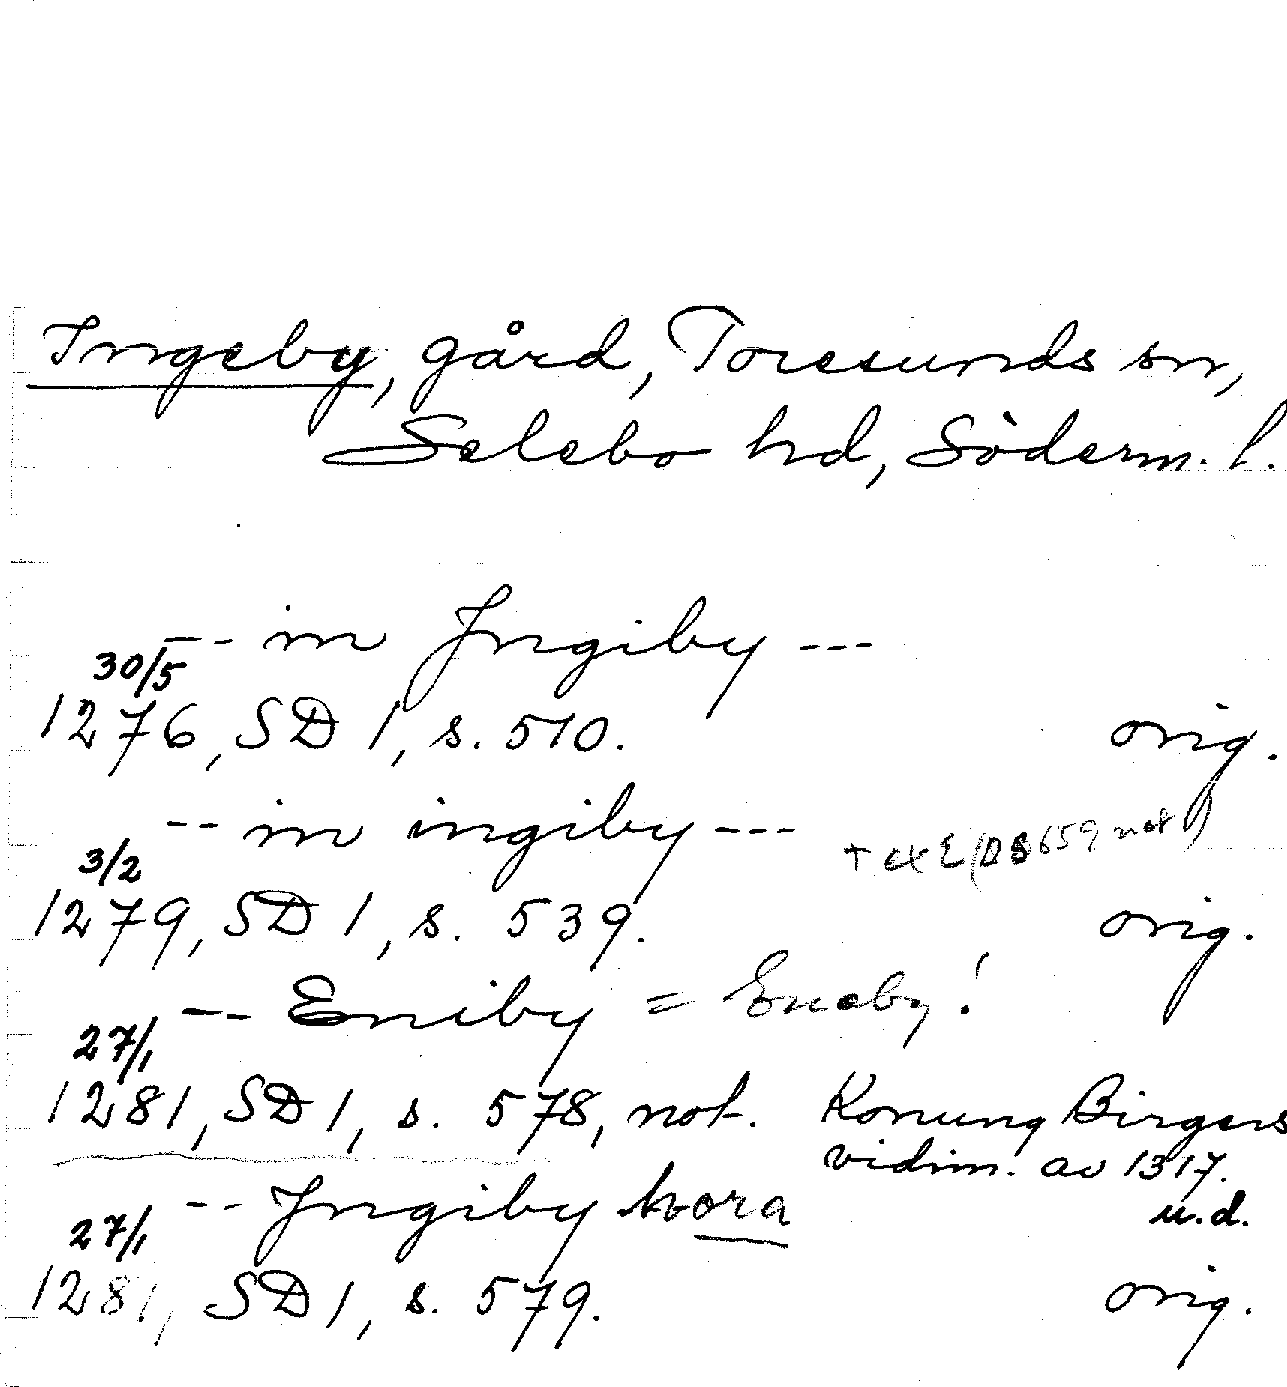 Ingeby, gård, Toresunds sn,
Selebo hd, Söderm. l.
-- in Ingiby ---
30/5
1276, SD 1, s. 510. orig.
-- in ingiby ---
3/2 + ex E (DS 659 not)
1279, SD 1, s. 539. orig.
-- Eniby = Eneby!
27/1
1281, SD 1, s. 578, not. Konung Birgers
vidim. av 1317.
u.d.
-- Ingiby hora
27/1
1281, SD 1, s. 579. orig.